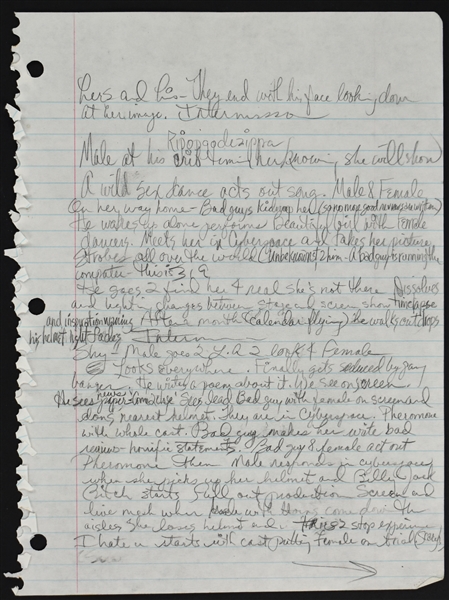 hers and his - They end with his face looking down
at her image. Intermission
Ripopgodazippa
Male at his (her knowing she will show)
A wild sex dance acts out song. Male & Female
On her way home - Bad guys kidnap her
He wakes up alone performs Beautiful girl with Female
dancers. Meets her in Cyberspace and takes her picture
Strobes all over the world (unbeknownst 2 him - A bad guy is running the
computer - This is 319
He goes 2 find her 4 real she's not there Dissolves
and light changes between steps as screen shows Timelapse
and inspiration waning After a month (Calendar flying) he walks out & drops
his helmet light fades Intern
Shy - Male goes 2 L.A. 2 look 4 Female
Looks everywhere. Finally gets seduced by gang
banger. He writes a poem about it. We see on screen
He sees newspaper Sees Dead Bad guy with female on screen and
dons nearest helmet. They are in Cyberspace. Pheromone
with whole cast. Bad guy makes her write bad
reviews - horrific statements. Bad guy & female act out
Pheromone then Male responds in cyberspace
when she picks up her helmet and Billy Jack
Bitch starts Full out production Screen and
live meet when come down the
aisles She loses helmet and tries 2 stop experience
I hate u starts with cast putting Female on trial